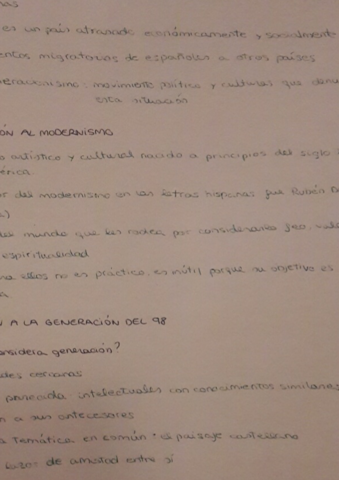 es un país atrasado económicamente y socialmente
migratorios de españoles a otros países
movimiento político y cultural que
esta situación
AL MODERNISMO
artístico y cultural nacido a principios del siglo
del modernismo en las letras hispanas fue Rubén
mundo que les rodea por considerarlo feo,
espiritualidad
ellos no es práctico, es inútil porque su objetivo es
A LA GENERACIÓN DEL 98
generación?
cercanas
parecida: intelectuales con conocimientos similares
a sus antecesores
Temática en común: el paisaje castellano
lazos de amistad entre sí